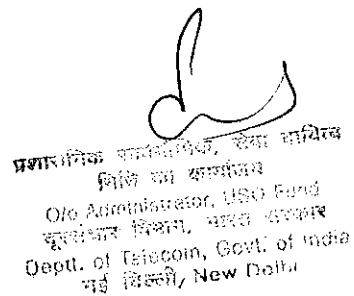 निधि का कार्यालय
O/o Administrator, USO Fund
दूरसंचार विभाग, भारत सरकार
Deptt. of Telecom, Govt. of India
नई दिल्ली, New Delhi